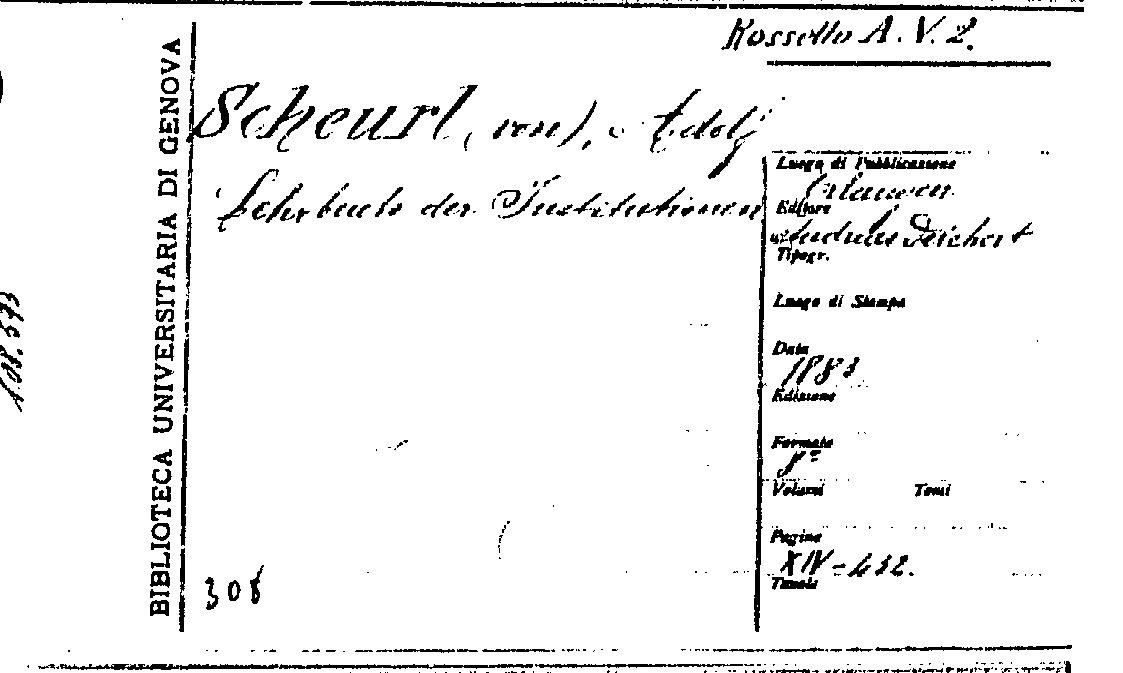 Rossello A. V. 2.
BIBLIOTECA UNIVERSITARIA DI GENOVA
Scheurl (von), Adolf
Lehrbuch der Institutionen
Luogo di Pubblicazione
Erlangen
Editore
Andreas Deichert
Tipogr.
Luogo di Stampa
Data
1883
Edizione
Formato
8°
Volumi Tomi
Pagine
XIV-432.
Tavole
308